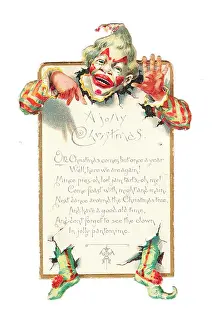 A Jolly
Christmas.
Oh Christmas comes but once a year
Well, here we are again!
Mince pies, oh, and
Come feast with might and main,
Next dance around the Christmas tree,
And have a good old time,
And don't forget to see the clown
In jolly pantomime.